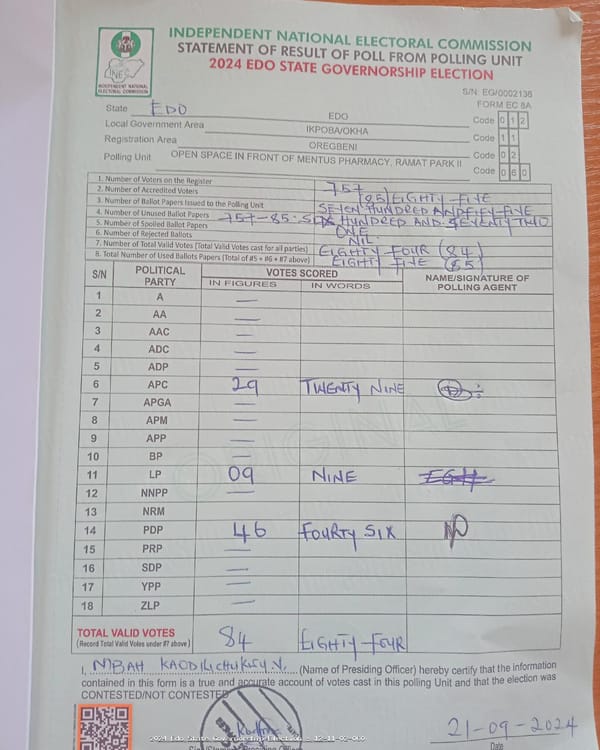 INDEPENDENT NATIONAL ELECTORAL COMMISSION
STATEMENT OF RESULT OF POLL FROM POLLING UNIT
2024 EDO STATE GOVERNORSHIP ELECTION
INEC
INDEPENDENT NATIONAL ELECTORAL COMMISSION
S/N: EG/0002138
FORM EC 8A
State EDO EDO Code 0 1 2
Local Government Area IKPOBA/OKHA Code 1 1
Registration Area OREGBENI Code 0 2
Polling Unit OPEN SPACE IN FRONT OF MENTUS PHARMACY, RAMAT PARK II Code 0 6 0
1. Number of Voters on the Register 757
2. Number of Accredited Voters (85) EIGHTY-FIVE
3. Number of Ballot Papers Issued to the Polling Unit SEVEN HUNDRED AND FIFTY-FIVE
4. Number of Unused Ballot Papers 757-85: SIX HUNDRED AND SEVENTY TWO
5. Number of Spoiled Ballot Papers ONE
6. Number of Rejected Ballots NIL
7. Number of Total Valid Votes (Total Valid Votes cast for all parties) EIGHTY FOUR (84)
8. Total Number of Used Ballots Papers (Total of #5 + #6 + #7 above) EIGHTY FIVE (85)
S/N POLITICAL PARTY VOTES SCORED NAME/SIGNATURE OF POLLING AGENT
IN FIGURES IN WORDS
1 A —
2 AA —
3 AAC —
4 ADC —
5 ADP —
6 APC 29 TWENTY NINE
7 APGA —
8 APM —
9 APP —
10 BP —
11 LP 09 NINE
12 NNPP —
13 NRM
14 PDP 46 FOURTY SIX
15 PRP —
16 SDP —
17 YPP —
18 ZLP —
ORIGINAL
TOTAL VALID VOTES 84 EIGHTY-FOUR
(Record Total Valid Votes under #7 above)
I, MBAH (Name of Presiding Officer) hereby certify that the information
contained in this form is a true and accurate account of votes cast in this polling Unit and that the election was
CONTESTED/NOT CONTESTED
21-09-2024
Date
2024 Edo State Governorship Election - 12-11-02-060